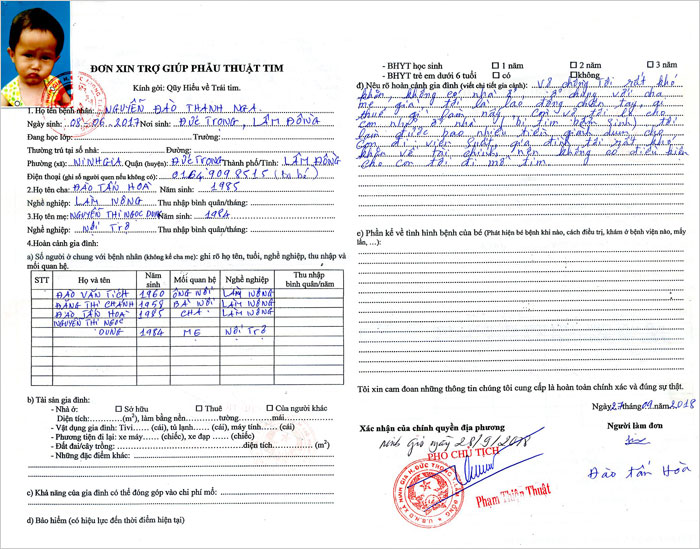 ĐƠN XIN TRỢ GIÚP PHẪU THUẬT TIM
Kính gởi: Qũy Hiểu về Trái tim.
1. Họ tên bệnh nhân: NGUYỄN ĐÀO THANH NGA.
Ngày sinh: 08.06.2017 Nơi sinh: ĐỨC TRỌNG, LÂM ĐỒNG
Đang học lớp: Trường:
Thường trú tại số nhà: Đường:
Phường (xã): NINH GIA Quận (huyện): ĐỨC TRỌNG Thành phố/Tỉnh: LÂM ĐỒNG
Điện thoại (ghi số người quen nếu không có): 0164 909 8515 (bố bé)
2.Họ tên cha: ĐÀO TẤN HOÀ Năm sinh: 1985
Nghề nghiệp: LÀM NÔNG Thu nhập bình quân/tháng:
3.Họ tên mẹ: NGUYỄN THỊ NGỌC DUNG Năm sinh: 1984
Nghề nghiệp: NỘI TRỢ Thu nhập bình quân/tháng:
4.Hoàn cảnh gia đình:
a) Số người ở chung với bệnh nhân (không kể cha mẹ): ghi rõ họ tên, tuổi, nghề nghiệp, thu nhập và
mối quan hệ.
STT Họ và tên Năm sinh Mối quan hệ Nghề nghiệp Thu nhập bình quân/năm
ĐÀO VĂN TÍCH 1960 ÔNG NỘI LÀM NÔNG
ĐẶNG THỊ CHANH 1958 BÀ NỘI LÀM NÔNG
ĐÀO TẤN HOÀ 1985 CHA LÀM NÔNG
NGUYỄN THỊ NGỌC
DUNG 1984 MẸ NỘI TRỢ
b) Tài sản gia đình:
- Nhà ở: Sở hữu Thuê Của người khác
Diện tích:............(m²), làm bằng nền...........tường..........mái............
- Vật dụng gia đình: Tivi...... (cái), tủ lạnh...... (cái), máy tính...... (cái)
- Phương tiện đi lại: xe máy...... (chiếc), xe đạp ...... (chiếc)
- Đất đai/cây trồng: diện tích (m²)
- Những đặc điểm khác:
c) Khả năng của gia đình có thể đóng góp vào chi phí mổ:
d) Bảo hiểm (có hiệu lực đến thời điểm hiện tại)
- BHYT học sinh 1 năm 2 năm 3 năm
- BHYT trẻ em dưới 6 tuổi có không
đ) Nêu rõ hoàn cảnh gia đình (viết chi tiết gia cảnh): vợ chồng tôi rất khó
khăn, không có nhà ở chung với cha
mẹ già, tôi là lao động chân tay, ai
thuê gì làm nấy. Con
con nhỏ bị tim bẩm sinh, tôi
làm được bao nhiêu tiền giành dụm cho
con đi viện suốt, gia đình tôi rất khó
khăn về tài chính nên không có điều kiện
cho con tôi đi mổ tim.
e) Phần kể về tình hình bệnh của bé (Phát hiện bệnh khi nào, cách điều trị, khám ở bệnh viện nào, mấy
lần, ...):
Tôi xin cam đoan những thông tin chúng tôi cung cấp là hoàn toàn chính xác và đúng sự thật.
Ngày 27 tháng 09 năm 2018
Xác nhận của chính quyền địa phương Người làm đơn
Ninh Gia ngày 28/9/2018
PHÓ CHỦ TỊCH
Phạm Thiện Thuật
Đào Tấn Hòa